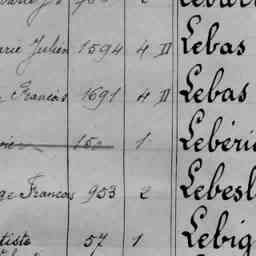 Julien 1594 4 D Lebas
Francois 1691 4 D Lebas
150 1 Lebéri
ge Francois 953 2 Lebesl
tiste 57 1 Lebig